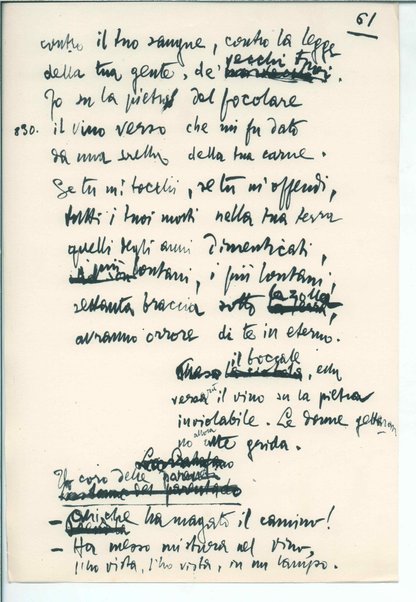 61
contro il tuo sangue, contro la legge
vecchi tuoi
della tua gente, de'
Io su la pietra del focolare
830. il vino verso che mi fu dato
da una sorella della tua carne.
Se tu mi tocchi, se tu m'offendi,
tutti i tuoi morti nella tua terra
quelli degli anni dimenticati,
i più lontani, i più lontani,
la zolla
settanta braccia sotto
avranno orrore di te in eterno.
il boccale
Prese, ed ella
verserà il vino su la pietra
inviolabile. Le donne gette ran
no allora alte grida.
Un coro delle
– Oh, che ha magato il camino!
– Ha messo mistura nel vino,
l'ho vista, l'ho vista, in un lampo.